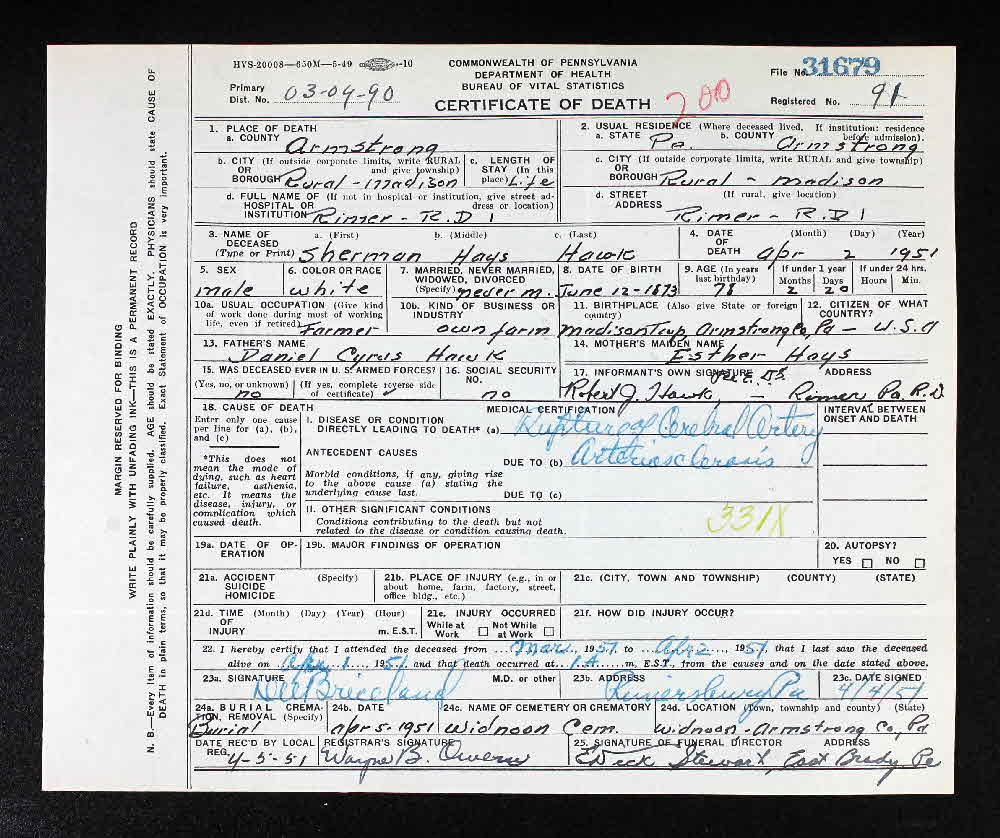 HVS-20008—650M—5-49 —10
COMMONWEALTH OF PENNSYLVANIA
DEPARTMENT OF HEALTH
BUREAU OF VITAL STATISTICS
CERTIFICATE OF DEATH
File No. 31679
Primary Dist. No. 03-04-90
200
Registered No. 91
1. PLACE OF DEATH
a. COUNTY Armstrong
b. CITY (If outside corporate limits, write RURAL and give township) OR BOROUGH Rural - Madison
c. LENGTH OF STAY (In this place) Life
d. FULL NAME OF (If not in hospital or institution, give street address or location) HOSPITAL OR INSTITUTION Rimer - R.D 1
2. USUAL RESIDENCE (Where deceased lived. If institution: residence before admission).
a. STATE Pa. b. COUNTY Armstrong
c. CITY (If outside corporate limits, write RURAL and give township) OR BOROUGH Rural - Madison
d. STREET ADDRESS (If rural, give location) Rimer - R.D 1
3. NAME OF DECEASED (Type or Print) a. (First) Sherman b. (Middle) Hays c. (Last) Hawk
4. DATE OF DEATH (Month) Apr (Day) 2 (Year) 1951
5. SEX male
6. COLOR OR RACE white
7. MARRIED, NEVER MARRIED, WIDOWED, DIVORCED (Specify) never m.
8. DATE OF BIRTH June 12-1873
9. AGE (In years last birthday) 78 If under 1 year Months 2 Days 20 If under 24 hrs. Hours Min.
10a. USUAL OCCUPATION (Give kind of work done during most of working life, even if retired) Farmer
10b. KIND OF BUSINESS OR INDUSTRY own farm
11. BIRTHPLACE (Also give State or foreign country) Madison Twp Armstrong Co, Pa -
12. CITIZEN OF WHAT COUNTRY? U.S.A
13. FATHER'S NAME Daniel Cyrus Hawk
14. MOTHER'S MAIDEN NAME Esther Hays
15. WAS DECEASED EVER IN U. S. ARMED FORCES? (Yes, no, or unknown) no (If yes, complete reverse side of certificate)
16. SOCIAL SECURITY NO. no
17. INFORMANT'S OWN SIGNATURE ADDRESS
Robert J. Hawk, - Rimer Pa. R.D
18. CAUSE OF DEATH
Enter only one cause per line for (a), (b), and (c)
*This does not mean the mode of dying, such as heart failure, asthenia, etc. It means the disease, injury, or complication which caused death.
MEDICAL CERTIFICATION
INTERVAL BETWEEN ONSET AND DEATH
I. DISEASE OR CONDITION DIRECTLY LEADING TO DEATH* (a) Rupture of Cerebral Artery
ANTECEDENT CAUSES
DUE TO (b) Arteriosclerosis
Morbid conditions, if any, giving rise to the above cause (a) stating the underlying cause last.
DUE TO (c)
II. OTHER SIGNIFICANT CONDITIONS
Conditions contributing to the death but not related to the disease or condition causing death.
331X
19a. DATE OF OPERATION
19b. MAJOR FINDINGS OF OPERATION
20. AUTOPSY? YES NO
21a. ACCIDENT SUICIDE HOMICIDE (Specify)
21b. PLACE OF INJURY (e.g., in or about home, farm, factory, street, office bldg., etc.)
21c. (CITY, TOWN AND TOWNSHIP) (COUNTY) (STATE)
21d. TIME OF INJURY (Month) (Day) (Year) (Hour) m. E.S.T.
21e. INJURY OCCURRED While at Work Not While at Work
21f. HOW DID INJURY OCCUR?
22. I hereby certify that I attended the deceased from Mar, 1951 to Apr 2, 1951, that I last saw the deceased
alive on Apr 1, 1951, and that death occurred at 1 A. m. E.S.T., from the causes and on the date stated above.
23a. SIGNATURE M.D. or other
23b. ADDRESS Rimersburg Pa
23c. DATE SIGNED 4/4/51
24a. BURIAL CREMATION, REMOVAL (Specify) Burial
24b. DATE Apr 5-1951
24c. NAME OF CEMETERY OR CREMATORY Widnoon Cem.
24d. LOCATION (Town, township and county) (State) Widnoon - Armstrong Co, Pa
DATE REC'D BY LOCAL REG. 4-5-51
REGISTRAR'S SIGNATURE Wayne B. Owens
25. SIGNATURE OF FUNERAL DIRECTOR ADDRESS
Stewart, East Brady, Pa
MARGIN RESERVED FOR BINDING
WRITE PLAINLY WITH UNFADING INK—THIS IS A PERMANENT RECORD
N. B.—Every item of information should be carefully supplied. AGE should be stated EXACTLY. PHYSICIANS should state CAUSE OF
DEATH in plain terms, so that it may be properly classified. Exact Statement of OCCUPATION is very important.